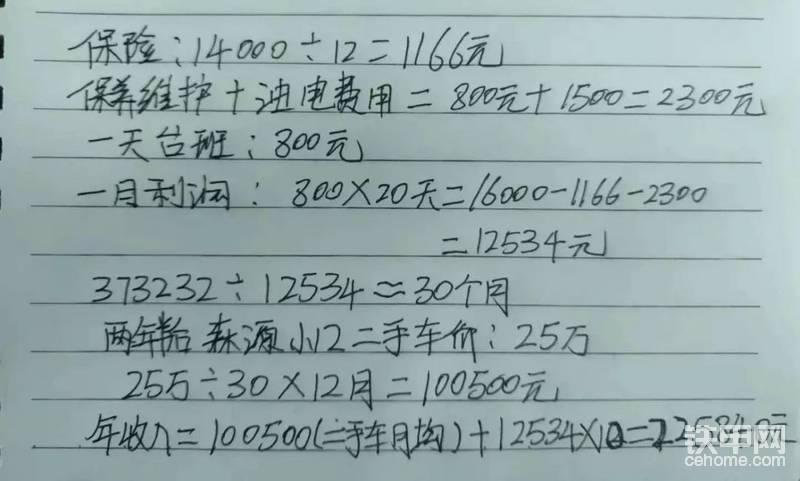 保险：14000÷12=1166元
保养维护+油电费用=800元+1500=2300元
一天台班：800元
一月利润：800×20天=16000-1166-2300
=12534元
373232÷12534≈30个月
两年后森源小12二手车价：25万
25万÷30×12月=100500元
年收入=100500(二手车月均)+12534×10=225840元
铁甲网
cehome.com